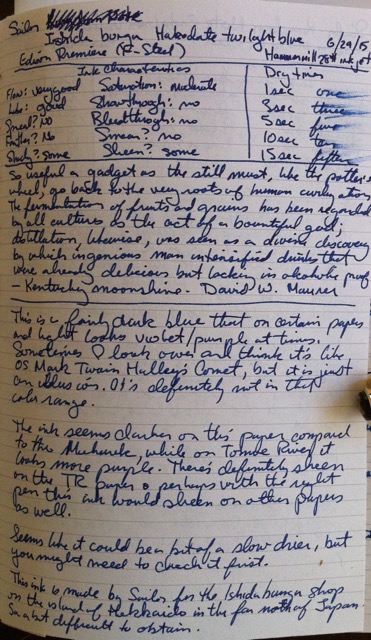 Sailor
Ishida bungu Hakodate twilight blue 6/29/15
Edison Premiere (F-Steel) Hammermill 28# ink jet
Ink Characteristics Dry times
Flow: very good Saturation: moderate 1 sec one
Lube: good Showthrough: no 3 sec three
Smell? No Bleedthrough: no 5 sec five
Feather? No Smear? no 10 sec ten
Shady? some Sheen? some 15 sec fifteen
So useful a gadget as the still must, like the potter's
wheel, go back to the very roots of human civilization.
The fermentation of fruits and grains has been regarded
by all cultures as the act of a bountiful god;
distillation, likewise, was seen as a divine discovery
by which ingenious man intensified drinks that
were already delicious but lacking in alcoholic proof
- Kentucky moonshine. David W. Maurer
This is a fairly dark blue that on certain papers
and light looks violet/purple at times.
Sometimes I look over and think it's like
OS Mark Twain Halley's Comet, but it is just
an illusion. It's definitely not in that
color range.
The ink seems darker on this paper compared
to the Mohawk, while on Tomoe River it
looks more purple. There's definitely sheen
on the TR paper & perhaps with the right
pen this ink would sheen on other papers
as well.
Seems like it could be a bit of a slow drier, but
you might need to check it first.
This ink is made by Sailor for the Ishida bungu shop
on the island of Hokkaido in the far north of Japan.
So a bit difficult to obtain.